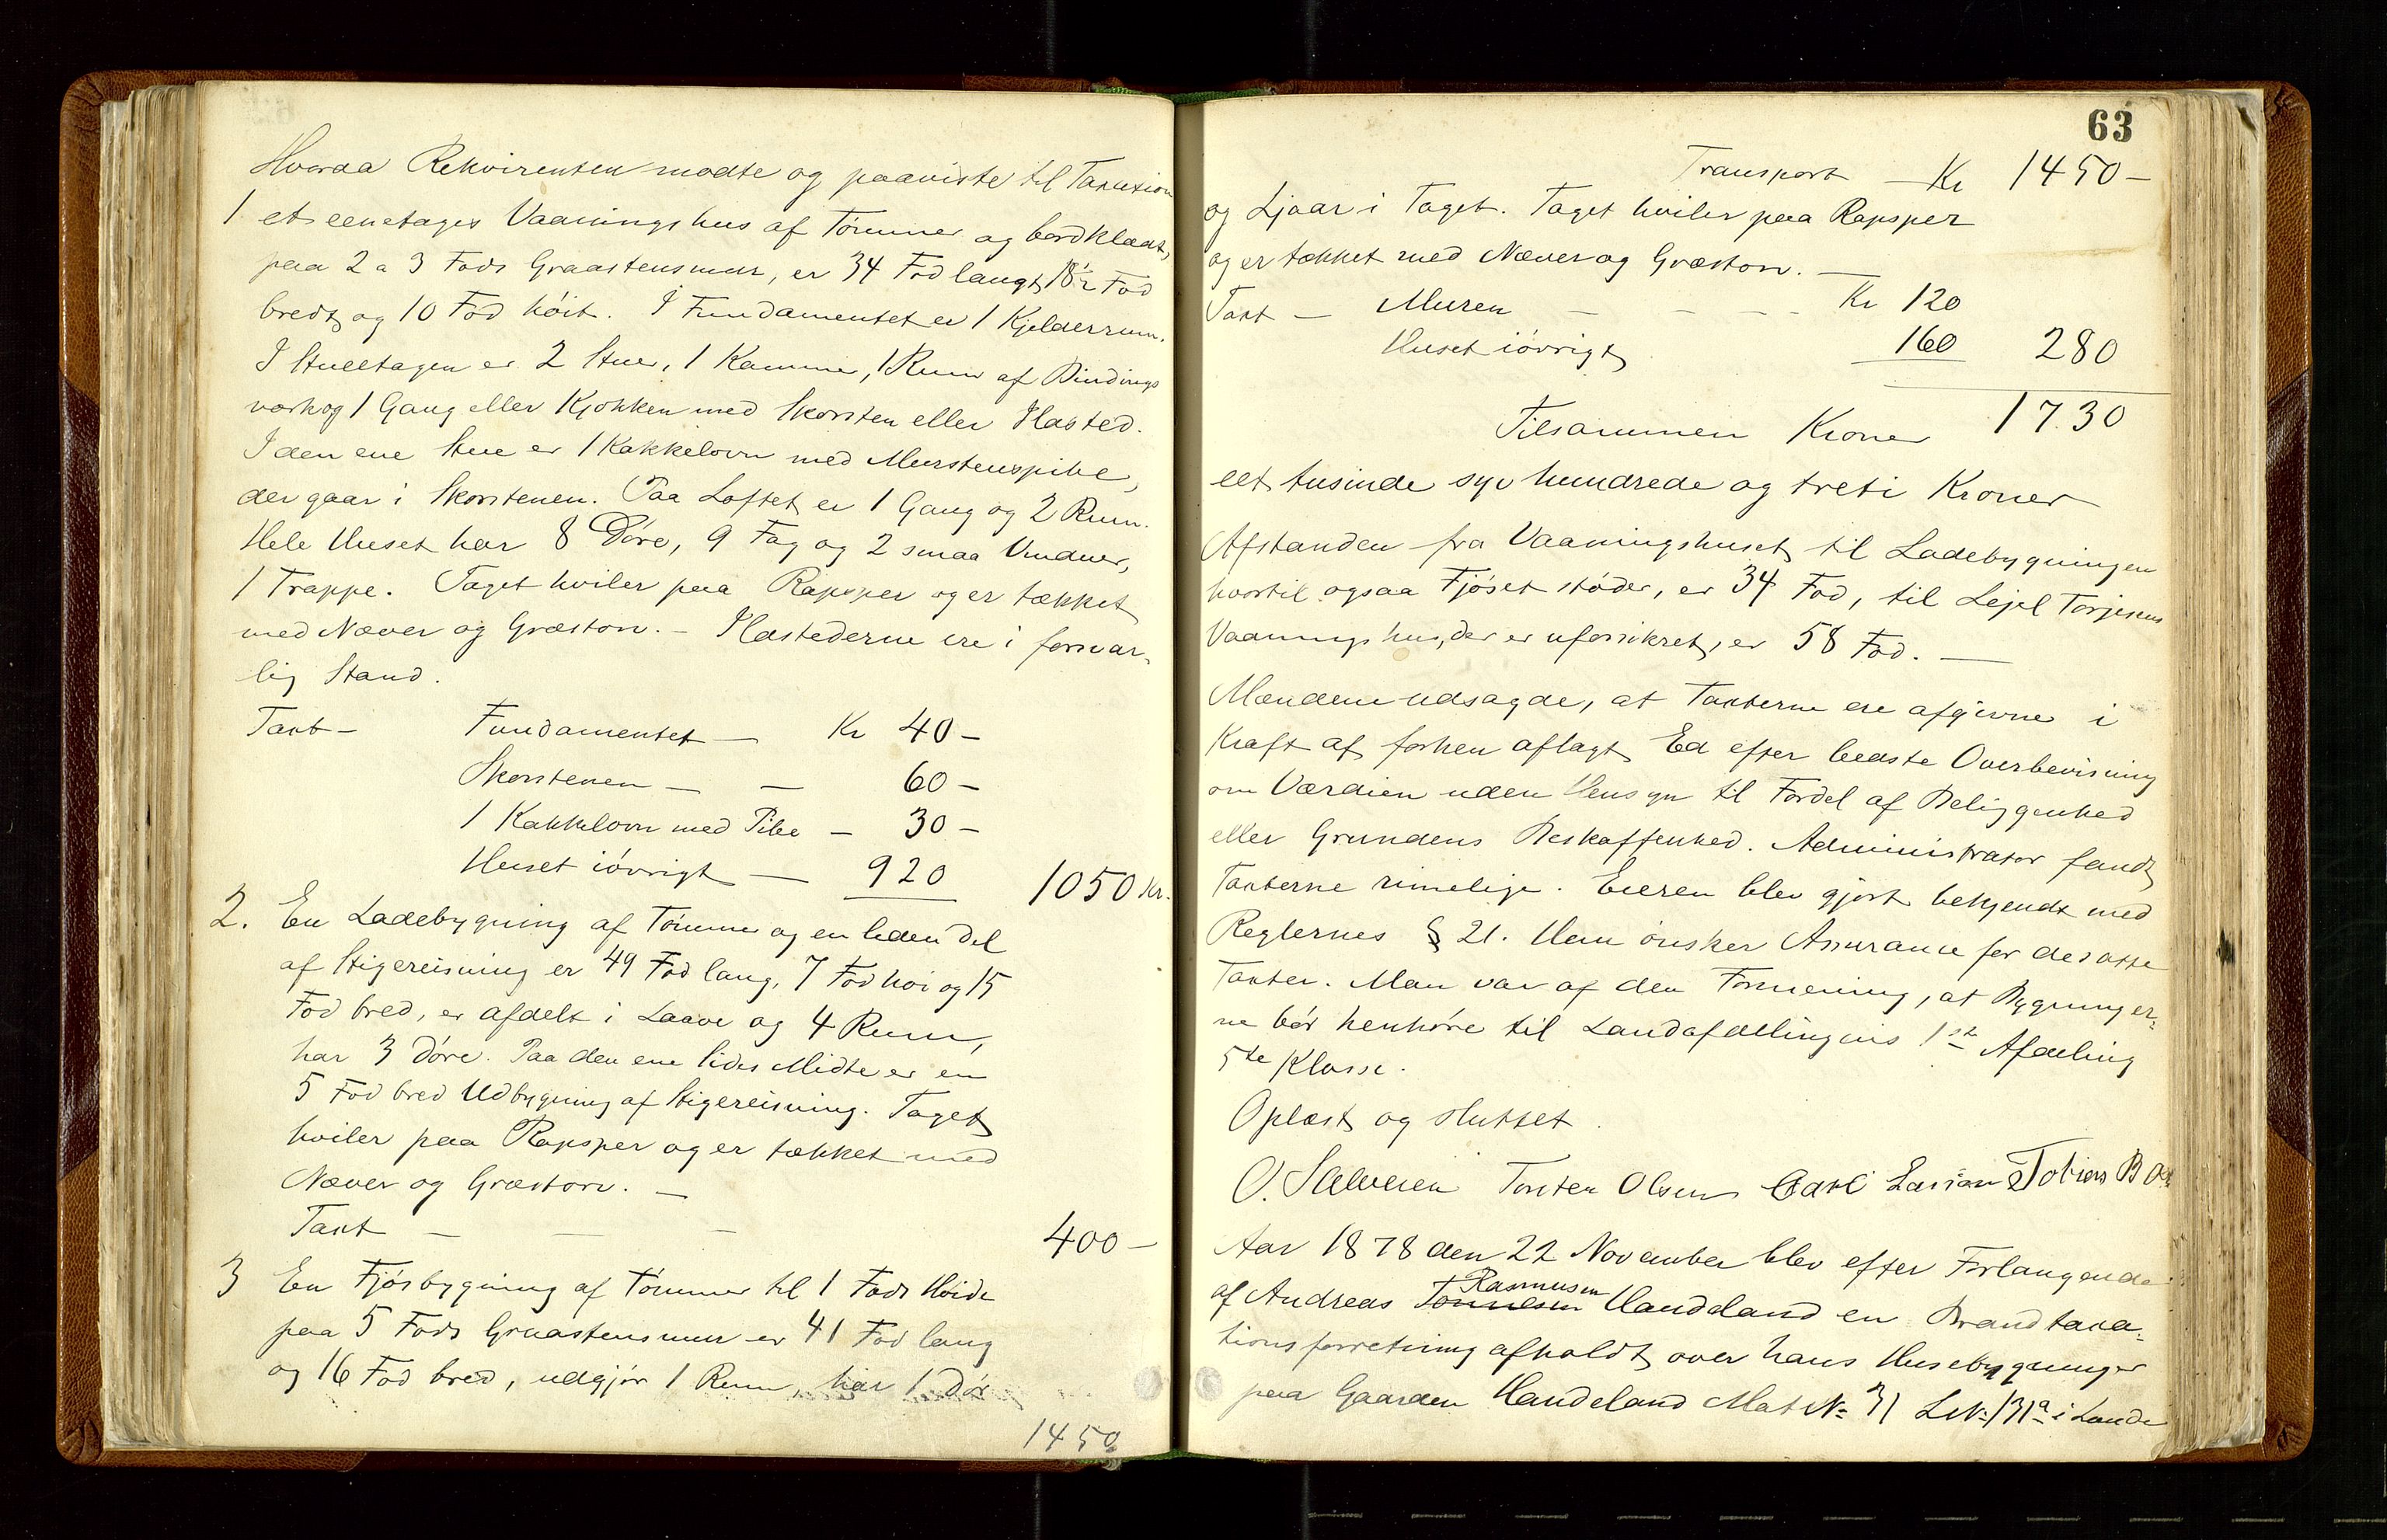 Hvoraa Rekvirenten mødte og paaviste til Taxation
1 et eenetages Vaaningshus af Tømmer og bordklædt,
paa 2 a 3 Fods Graastensmur, er 34 Fod langt, 18½ Fod
bredt og 10 Fod høit. I Fundamentet er 1 Kjelderrum.
I Stueetagen er 2 Stuer, 1 Kammer, 1 Rum af Bindings
værk og 1 Gang eller Kjøkken med Skorsten eller Ildsted.
I den ene Stue er 1 Kakkelovn med Murstenspibe,
der gaar i Skorstenen. Paa Loftet er 1 Gang og 2 Rum.
Hele Huset har 8 Døre, 9 Fag og 2 smaa Vinduer,
1 Trappe. Taget hviler paa Rapsper og er tækket
med Næver og Græstorv. – Ildstederne ere i forsvar-
lig Stand.
Taxt – Fundamentet – Kr 40 –
Skorstenen – – 60 –
1 Kakkelovn med Pibe – 30 –
Huset iøvrigt – 920 1050 Kr.
2. En Ladebygning af Tømmer og en liden Del
af Stigereisning er 49 Fod lang, 7 Fod høi og 15
Fod bred, er afdelt i Laave og 4 Rum,
har 3 Døre. Paa den ene Sides Midte er en
5 Fod bred Udbygning af Stigereisning. Taget
hviler paa Rapsper og er tækket med
Næver og Græstorv. –
Taxt – – – 400 –
3 En Fjøsbygning af Tømmer til 1 Fods Høide
paa 5 Fods Graastensmur er 41 Fod lang
og 16 Fod bred, udgjør 1 Rum, har 1 Dør
1450
63
Transport – Kr 1450 –
og Ljaar i Taget. Taget hviler paa Rapsper
og er tækket med Næver og Græstorv. –
Taxt – Muren – – – Kr 120
Huset iøvrigt 160 280
Tilsammen Kroner 1730
eet tusinde syv hundrede og treti Kroner
Afstanden fra Vaaningshuset til Ladebygningen
hvortil ogsaa Fjøset støder, er 34 Fod, til Lejel Torjesens
Vaaningshus, der er uforsikret, er 58 Fod. –
Mændene udsagde, at Taxterne ere afgivne i
Kraft af forhen aflagt Ed efter bedste Overbevisning
om Værdien uden Hensyn til Fordel af Beliggenhed
eller Grundens Beskaffenhed. Administrator fandt
Taxterne rimelige. Eieren blev gjort bekjendt med
Reglernes § 21. Han ønsker Assurance for de satte
Taxter. Man var af den Formening, at Bygninger-
ne bør henhøre til Landafdelingens 1ste Afdeling
5te Klasse.
Oplæst og sluttet.
O. Salvesen Torsten Olsen Carl Larsson Tobias B
Aar 1878 den 22 November blev efter Forlangende
af Andreas Tønnesen Rasmusen Handeland en Brandtaxa-
tionsforretning afholdt over hans Husebygninger
paa Gaarden Handeland Mat No 31 LNo 131a i Lande